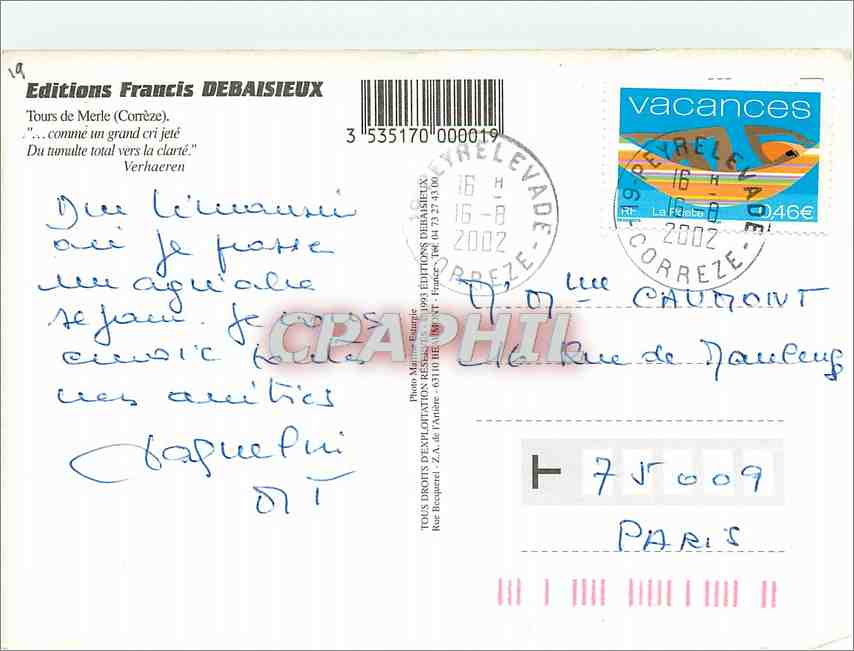 19
Editions Francis DEBAISIEUX
Tours de Merle (Corrèze).
"... comme un grand cri jeté
Du tumulte total vers la clarté."
Verhaeren
3 535170 000019
Du Limousin
où je passe
un agréable
séjour. Je vous
envoie toutes
mes amitiés
Jaqueline
MT
Photo Martine Esturgie
TOUS DROITS D'EXPLOITATION RÉSERVÉS - © 1993 ÉDITIONS DEBAISIEUX
Rue Becquerel - Z.A. de l'Artière - 63110 BEAUMONT - France - Tél. 04 73 27 45 00
vacances
RF La Poste 0,46€
19-PEYRELEVADE
16 H
16-8
2002
CORREZE
19-PEYRELEVADE
16 H
16-8
2002
CORREZE
M. Mme CAUMONT
rue de Maubeuge
T 75009
PARIS
CPAPHIL